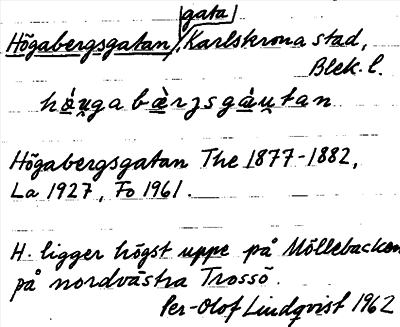 gata
Högabergsgatan, Karlskrona stad,
Blek. l.
Högabergsgatan The 1877-1882,
La 1927, Fo 1961.
H. ligger högst uppe på Möllebacken
på nordvästra Trossö.
Per-Olof Lindqvist 1962